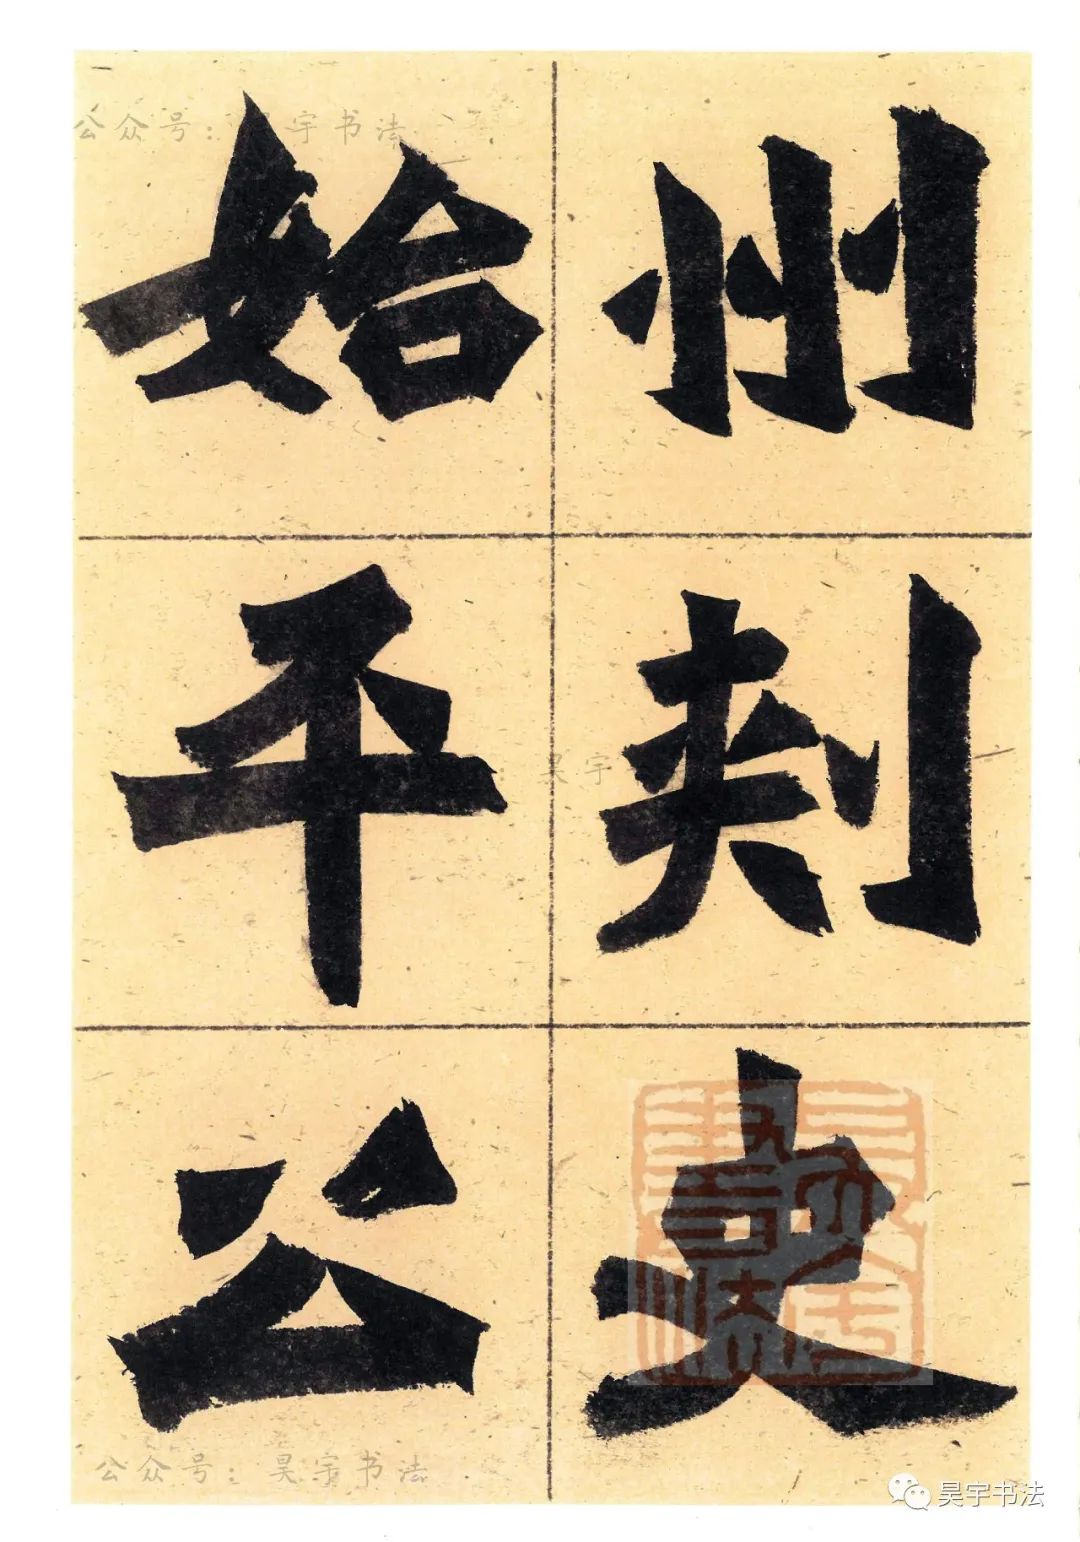 州刾史
始平公
公众号：昊宇书法
昊宇
公众号：昊宇书法
昊宇书法